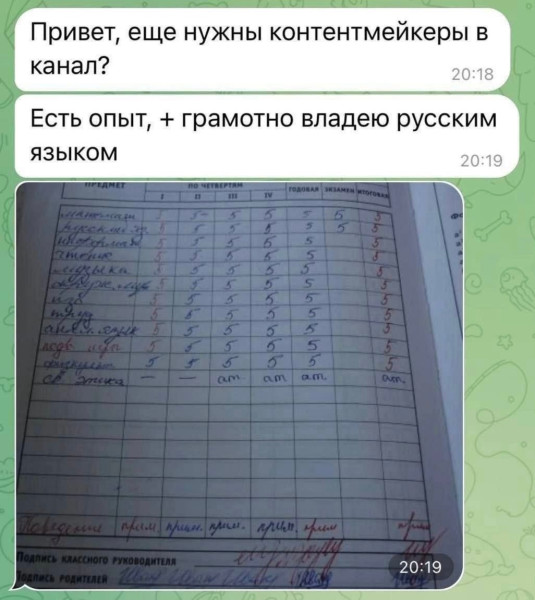 Привет, еще нужны контентмейкеры в
канал?
20:18
Есть опыт, + грамотно владею русским
языком
20:19
ПРЕДМЕТ ПО ЧЕТВЕРТЯМ ГОДОВАЯ ЭКЗАМЕН ИТОГОВАЯ
I II III IV
математи 5 5 5 5 5 5 5
русский яз 5 5 5 5 5 5 5
информат 5 5 5 5 5 5
этика 5 5 5 5 5 5
музыка 5 5 5 5 5 5
5 5 5 5 5 5
изо 5 5 5 5 5 5
труд 5 5 5 5 5 5
англ. язык 5 5 5 5 5 5
подв. игры 5 5 5 5 5 5
5 5 5 5 5 5
св. этика — — ат. ат. ат. ат.
Поведение прим. прим. прим. прим. прим прим
ПОДПИСЬ КЛАССНОГО РУКОВОДИТЕЛЯ
ПОДПИСЬ РОДИТЕЛЕЙ
20:19